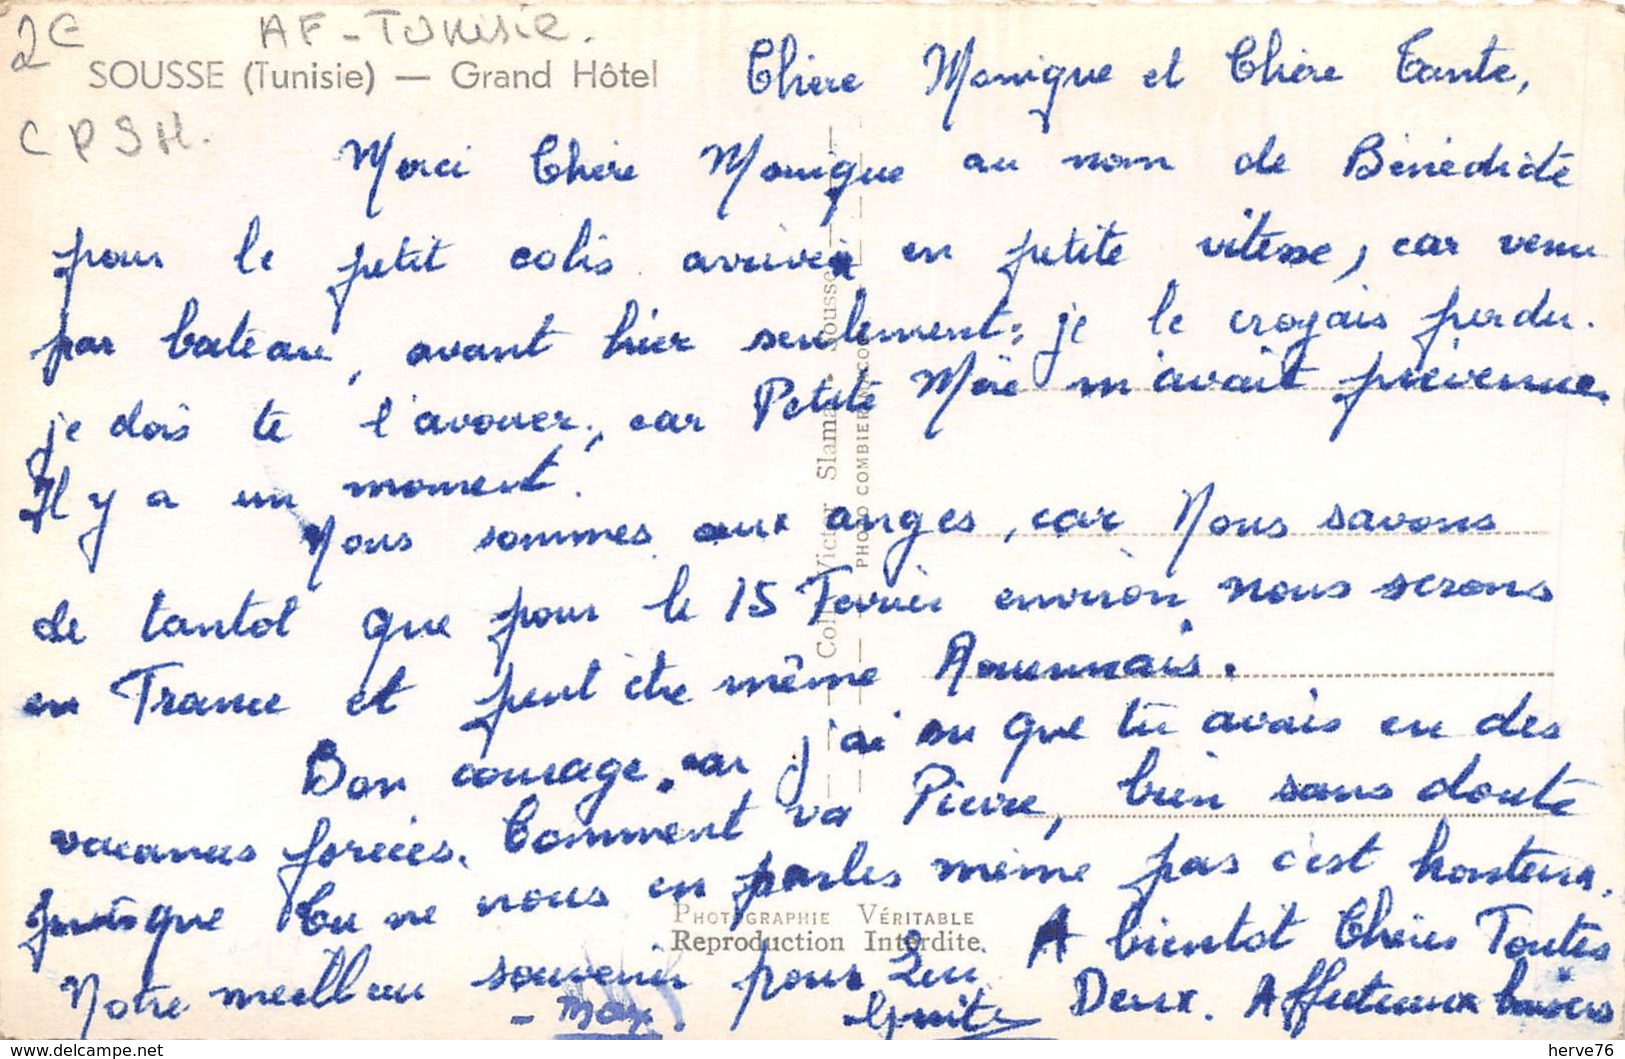 2€ AF - Tunisie.
SOUSSE (Tunisie) — Grand Hôtel
CPSM.
Chère Monique et Chère Tante,
Merci Chère Monique au nom de Bénédicte
pour le petit colis arrivé en petite vitesse, car venu
par bateau, avant hier seulement; je le croyais perdu.
je dois te l'avouer, car Petite Mère m'avait prévenue
Il y a un moment.
Nous sommes aux anges, car Nous savons
de tantot que pour le 15 Fevrier environ nous serons
en France et peut être même
Bon courage, car j'ai su que tu avais eu des
vacances forcées. Comment va Pierre, bien sans doute
puisque tu ne nous en parles même pas c'est honteux.
A bientôt Chères Toutes
Notre meilleur souvenir pour Lui. Deux. Affectueux baisers
- Max. Guite
Coll. Victor Slama - Sousse
PHOTO COMBIER MACON
PHOTOGRAPHIE VÉRITABLE
Reproduction Interdite.
delcampe.net
herve76